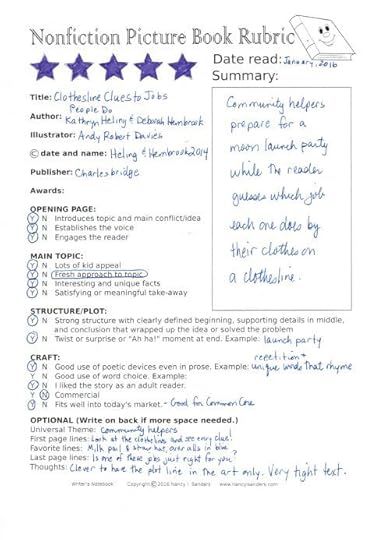 Nonfiction Picture Book Rubric
Date read: January, 2016
Summary:
Title: Clothesline Clues to Jobs
People Do
Author: Kathryn Heling & Deborah Hembrook
Illustrator: Andy Robert Davies
© date and name: Heling & Hembrook 2014
Publisher: Charlesbridge
Awards:
Community helpers
prepare for a
moon launch party
while the reader
guesses which job
each one does by
their clothes on
a clothesline.
OPENING PAGE:
Y N Introduces topic and main conflict/idea
Y N Establishes the voice
Y N Engages the reader
MAIN TOPIC:
Y N Lots of kid appeal
Y N Fresh approach to topic
Y N Interesting and unique facts
Y N Satisfying or meaningful take-away
STRUCTURE/PLOT:
Y N Strong structure with clearly defined beginning, supporting details in middle,
and conclusion that wrapped up the idea or solved the problem
Y N Twist or surprise or "Ah ha!" moment at end. Example: launch party
CRAFT:
repetition +
Y N Good use of poetic devices even in prose. Example: unique words that rhyme
Y N Good use of word choice. Example:
Y N I liked the story as an adult reader.
Y N Commercial
Y N Fits well into today's market. - Good for Common Core
OPTIONAL (Write on back if more space needed.)
Universal Theme: Community helpers
First page lines: Look at the clothesline and see every clue!
Favorite lines: Milk pail & straw hat, overalls in blue
Last page lines: Is one of these jobs just right for you?
Thoughts: Clever to have the plot line in the art only. Very tight text.
Writer's Notebook Copyright © 2016 Nancy I. Sanders www.nancyisanders.com